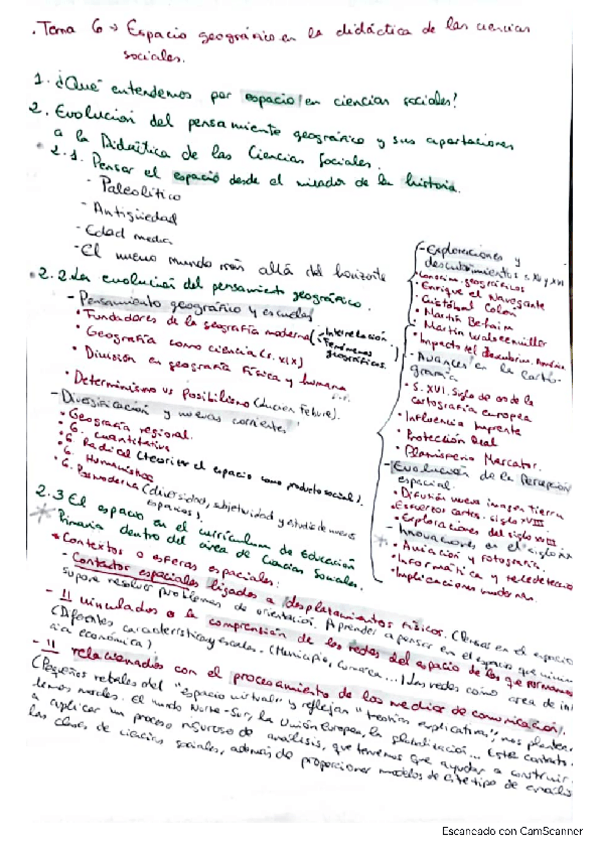 . Tema 6 → Espacio geográfico en la didáctica de las ciencias
sociales.
1. ¿Qué entendemos por espacio en ciencias sociales?
2. Evolución del pensamiento geográfico y sus aportaciones
a la Didáctica de las Ciencias Sociales.
• 2.1. Pensar el espacio desde el mirador de la historia.
- Paleolítico
- Antigüedad
- Edad media
- El nuevo mundo más allá del horizonte
- Exploraciones y
descubrimientos s. XV y XVI
• geográficos
• Enrique el Navegante
• Cristóbal Colón
• Martin Behaim
• Martin Waldseemüller
• Impacto del descubrim. América
- Avances en la carto-
grafía
• S. XVI. Siglo de oro de la
cartografía europea
• Influencia Imprenta
• Protección Real
• Planisferio Mercator.
- Evolución de la Percepción
espacial.
• Difusión nueva imagen tierra
• Esfuerzos cartog. siglo XVIII
• Exploraciones del siglo XVIII
- Innovaciones en el siglo XX
• Aviación y fotografía.
• Informática y teledetección
• Implicaciones modernas.
• 2.2 La evolución del pensamiento geográfico.
- Pensamiento geográfico y escuelas
• Fundadores de la geografía moderna (- Interrelación.
- Fenómenos
geográficos.
• Geografía como ciencia (s. XIX)
• División en geografía física y humana
• Determinismo vs Posibilismo (Lucien Febvre).
- Diversificación y nuevas corrientes
• Geografía regional.
• G. Cuantitativa
• G. Radical (teorizar el espacio como producto social).
• G. Humanística
• G. Posmoderna (diversidad, subjetividad y estudio de nuevos
espacios).
2.3 El espacio en el currículum de Educación
Primaria dentro del área de Ciencias Sociales.
• Contextos o esferas espaciales:
- Contextos espaciales ligados a desplazamientos físicos. (Pensar en el espacio
supone resolver problemas de orientación. Aprender a pensar en el espacio que
- 11 vinculados a la comprensión de las redes del espacio de las que formamos
(Diferentes características y escalas. (Municipio, comarca...) Las redes como área de in
cia económica)
- 11 relacionados con el procesamiento de los medios de comunicación).
(Pequeños retales del "espacio virtual" y reflejan "teorías explicativas", nos plantean
temas morales. El mundo Norte-Sur, la Unión Europea, la globalización... Este contexto
a aplicar un proceso riguroso de análisis, que tenemos que ayudar a construir
las clases de ciencias sociales, además de proporcionar modelos de este tipo de
Escaneado con CamScanner